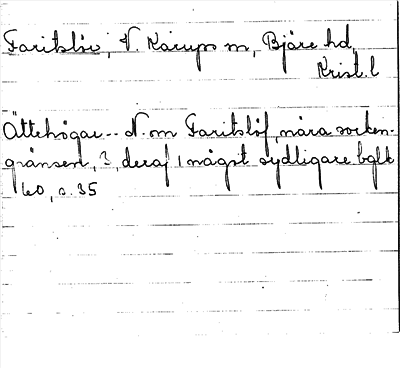 Faritslöv, V. Karups sn, Bjäre hd,
Krist. l
Ättehögar -- N. om Faritslöf, nära socken-
gränsen, 3, deraf 1 något sydligare bglt
60, s. 35